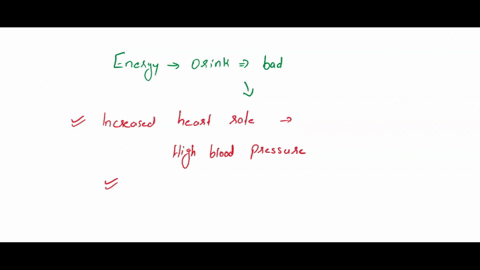 Energy → Drink ⇒ bad
↓
Increased heart rate →
High blood pressure